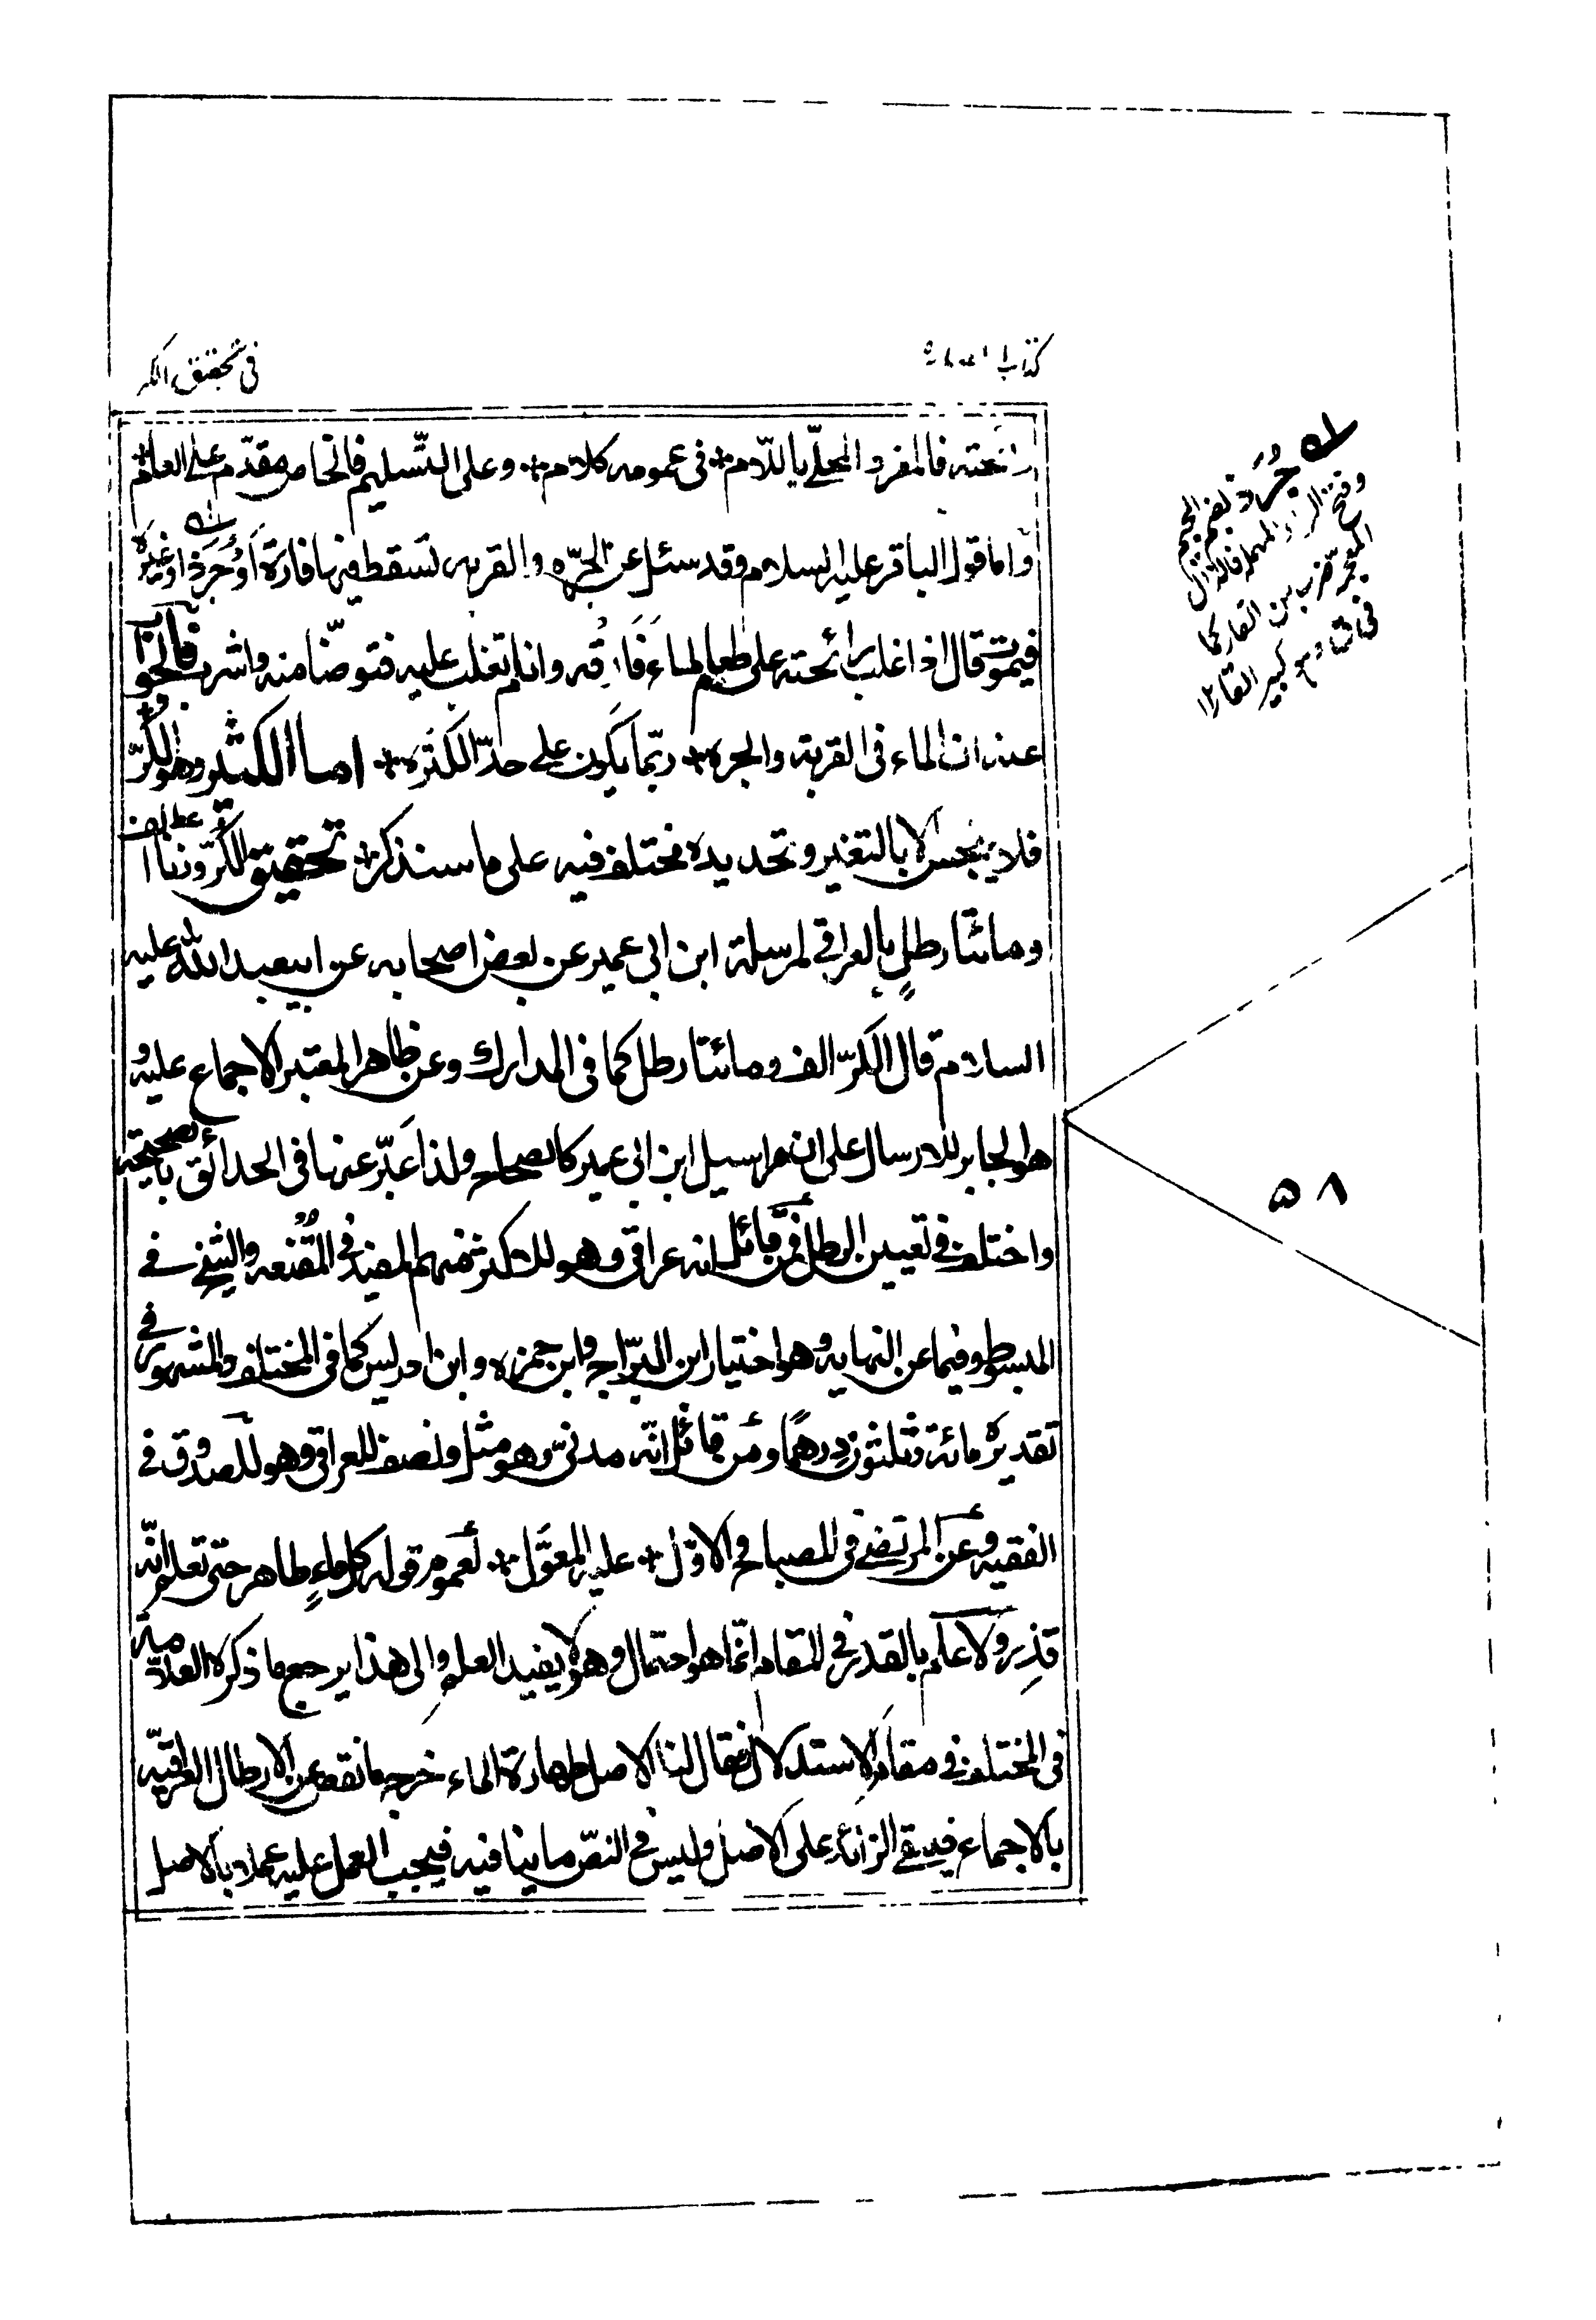 كتاب الطهارة
في تحقيق الكر
رائحته فالمفرد المحلّے باللّام في عمومه كلام وعلى التّسليم فالخاص مقدّم علے العام
وَاما قول الباقر عليه السلام وقد سئل عن الجرّه والقربه تسقط فيها فارة اَوْ جُرَذ او غيره
فيموت قال اذا غلب رائحته على طعم الماء فَاَرِقه وان لم تغلب عليه فتوضّا منه واشرب فالجواب
عنه ان الماء في القربة والجره ربّما يكون علے حدّ الكثره اما الكثير وهو الكرّ
فلا ينجس الا بالتغير وتحديده مختلف فيه على ما سنذكر تحقيق الكرّ وزنا الف
ومائتا رطلٍ بالعراقي لمرسلة ابن ابي عمير عن بعض اصحابه عن ابيعبد الله عليه
السلام قال الكرّ الف ومائتا رطل كما في المدارك وعن ظاهر المعتبر الاجماع عليه و
هو الجابر للارسال على ان مراسيل ابن ابي عمير كالصحاح ولذا عَبّر عنها في الحدائق بالصحيحة
واختلف في تعيين الرطل فمن قائل انه عراقي وهو للاكثر منهم المفيد في المُقنعه والشيخ في
المبسوط وفيما عن النهايه وهو اختيار ابن البرّاج وابن حمزه وابن ادريس كما في المختلف والمشهور في
تقديره مائة وثلثون درهمًا ومن قائل انّه مدنيّ وهو مثل ونصف للعراقي وهو للصدوق في
الفقيه وعن المرتضے في المصباح والاوّل عليه المعوَّل لعموم قوله كل ماءٍ طاهر حتى تعلم انّه
قذِر ولا علم بالقذر في المقام انّما هو احتمال وهو لا يفيد العلم والى هذا يرجع ما ذكره العلّامة
في المختلف في مقام الاستدلال فقال لنا الاصل طهارة الماء خرج ما نقص عن الارطال العراقيّه
بالاجماع فيبقے الزائد على الاصل وليس في النصّ ما ينافيه فيجب العمل عليه عملا بالاصل
جُرَذ بضم الجيم
وفتح الراء المهمله فالذال
المعجمه ضرب من الفار كما
۵۸